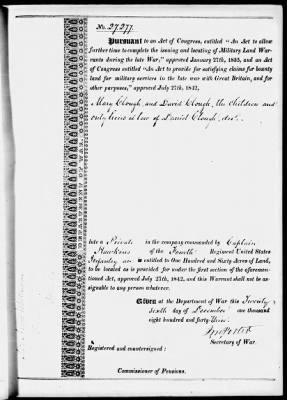 No. 27,277.
Pursuant to an Act of Congress, entitled "An Act to allow
further time to complete the issuing and locating of Military Land War-
rants during the late War," approved January 27th, 1835, and an Act
of Congress entitled "An Act to provide for satisfying claims for bounty
land for military services in the late war with Great Britain, and for
other purposes," approved July 27th, 1842,
Mary Clough, and David Clough, the Children and
only heirs at law of David Clough, decd.
late a Private in the company commanded by Captain
Hawkins of the Fourth Regiment United States
Infantry are entitled to One Hundred and Sixty Acres of Land,
to be located as is provided for under the first section of the aforemen-
tioned Act, approved July 27th, 1842, and this Warrant shall not be as-
signable to any person whatever.
Given at the Department of War this Twenty
sixth day of December one thousand
eight hundred and forty three.
Secretary of War.
Registered and countersigned:
Commissioner of Pensions.